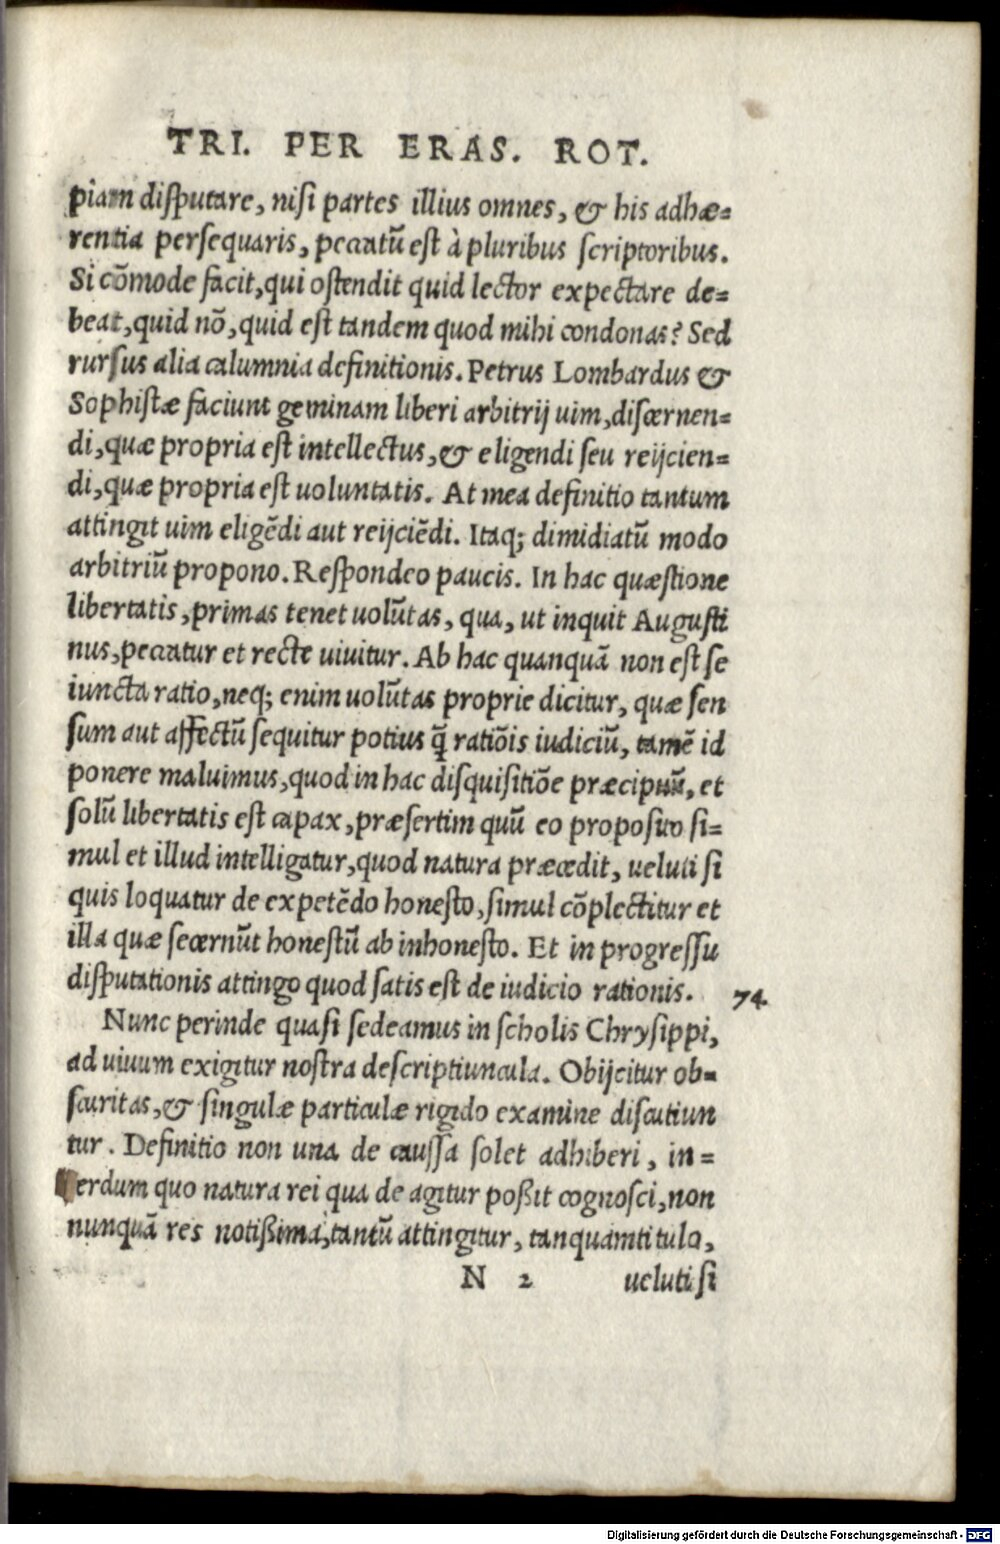 TRI. PER ERAS. ROT.
piam disputare, nisi partes illius omnes, & his adhæ=
rentia persequaris, peccatũ est à pluribus scriptoribus.
Si cõmode facit, qui ostendit quid lector expectare de=
beat, quid nõ, quid est tandem quod mihi condonas? Sed
rursus alia calumnia definitionis. Petrus Lombardus &
Sophistæ faciunt geminam liberi arbitrij uim, discernen=
di, quæ propria est intellectus, & eligendi seu reijcien=
di, quæ propria est uoluntatis. At mea definitio tantum
attingit uim eligẽdi aut reijciẽdi. Itaq; dimidiatũ modo
arbitriũ propono. Respondeo paucis. In hac quæstione
libertatis, primas tenet uolũtas, qua, ut inquit Augusti
nus, peccatur et recte uiuitur. Ab hac quanquã non est se
iuncta ratio, neq; enim uolũtas proprie dicitur, quæ sen
sum aut affectũ sequitur potius q̃ ratiõis iudiciũ, tamẽ id
ponere maluimus, quod in hac disquisitiõe præcipuũ, et
solũ libertatis est capax, præsertim quũ eo proposito si=
mul et illud intelligatur, quod natura præcedit, ueluti si
quis loquatur de expetẽdo honesto, simul cõplectitur et
illa quæ secernũt honestũ ab inhonesto. Et in progressu
disputationis attingo quod satis est de iudicio rationis. 74
Nunc perinde quasi sedeamus in scholis Chrysippi,
ad uiuum exigitur nostra descriptiuncula. Obijcitur ob=
scuritas, & singulæ particulæ rigido examine discutiun
tur. Definitio non una de caussa solet adhiberi, in=
terdum quo natura rei qua de agitur poßit cognosci, non
nunquã res notißima, tantũ attingitur, tanquam titulo,
N 2 ueluti si
Digitalisierung gefördert durch die Deutsche Forschungsgemeinschaft - DFG